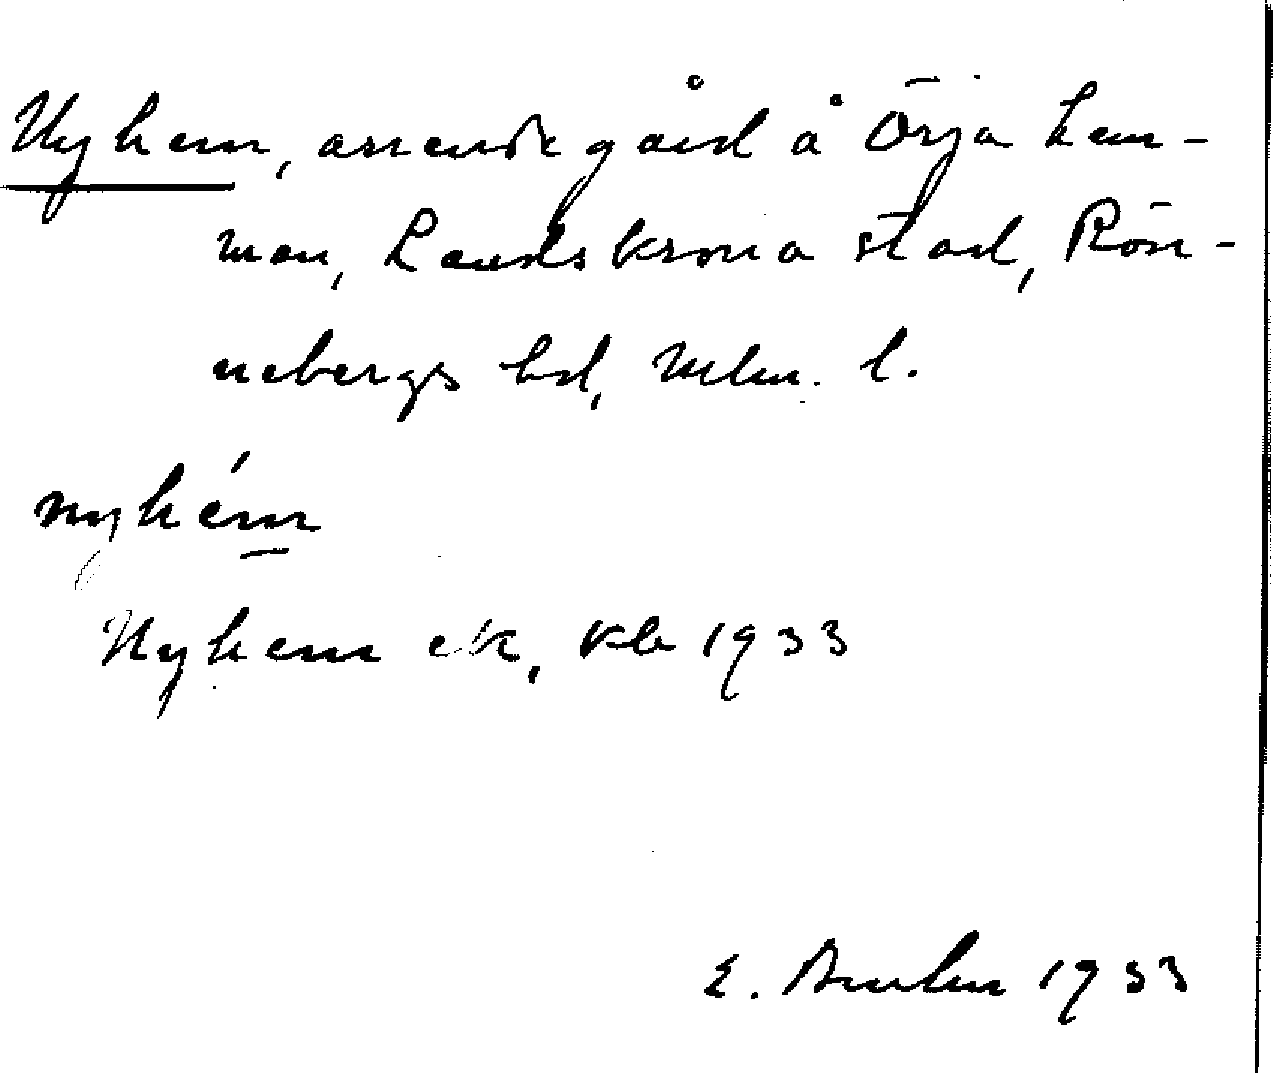 Nyhem, arrendegård å Örja Lem-
men, Landskrona stad, Rön-
nebergs hd, Mlm. l.
nyhém
Nyhem ek, Kb 1933
E. 1933